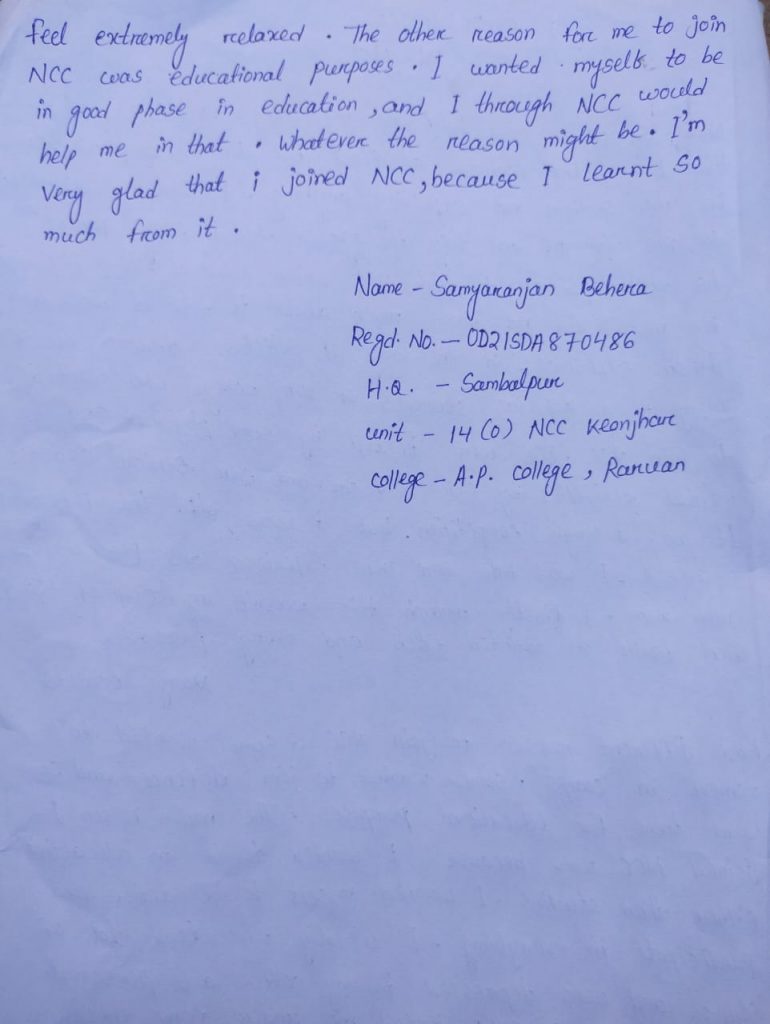 feel extremely relaxed . The other reason for me to join
NCC was educational purposes . I wanted myself to be
in good phase in education , and I through NCC would
help me in that . Whatever the reason might be . I'm
very glad that i joined NCC , because I learnt so
much from it .
Name - Samyaranjan Behera
Regd. No. - OD21SDA870486
H.Q. - Sambalpur
unit - 14 (O) NCC Keonjhar
college - A.P. college , Raruan